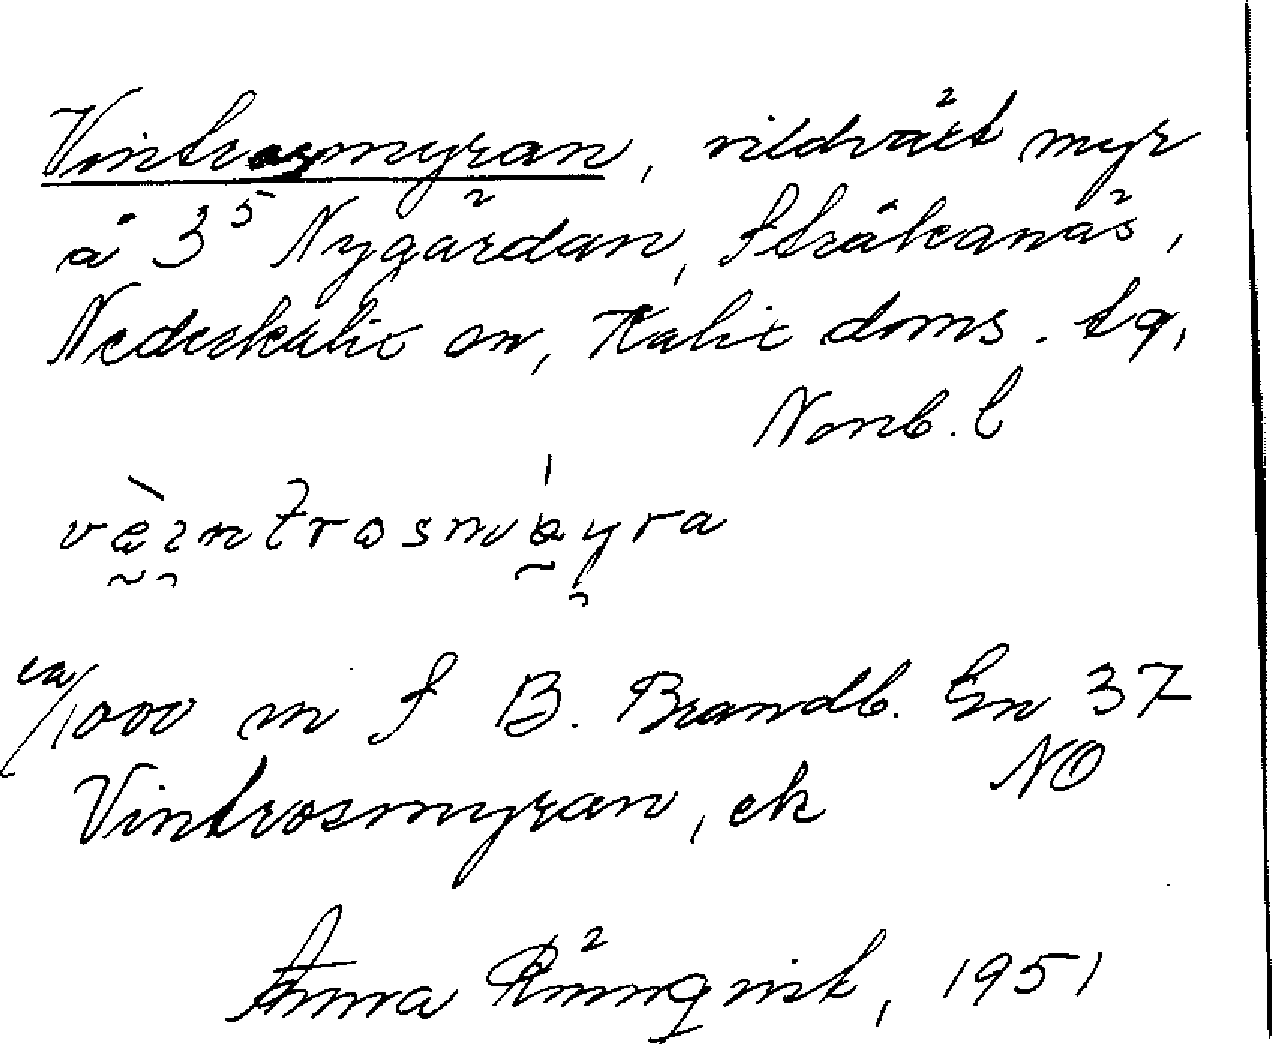 Vintrosmyran, vildvält myr
å 3⁵ Nygårdan, Stråkanäs,
Nederkalix sn, Kalix doms. tg,
Norrb. l
ve̖introsmö́yra
ca/1000 m S B. Brandb. Gn 37
NO
Vintrosmyran, ek
Anna Rönnqvist, 1951